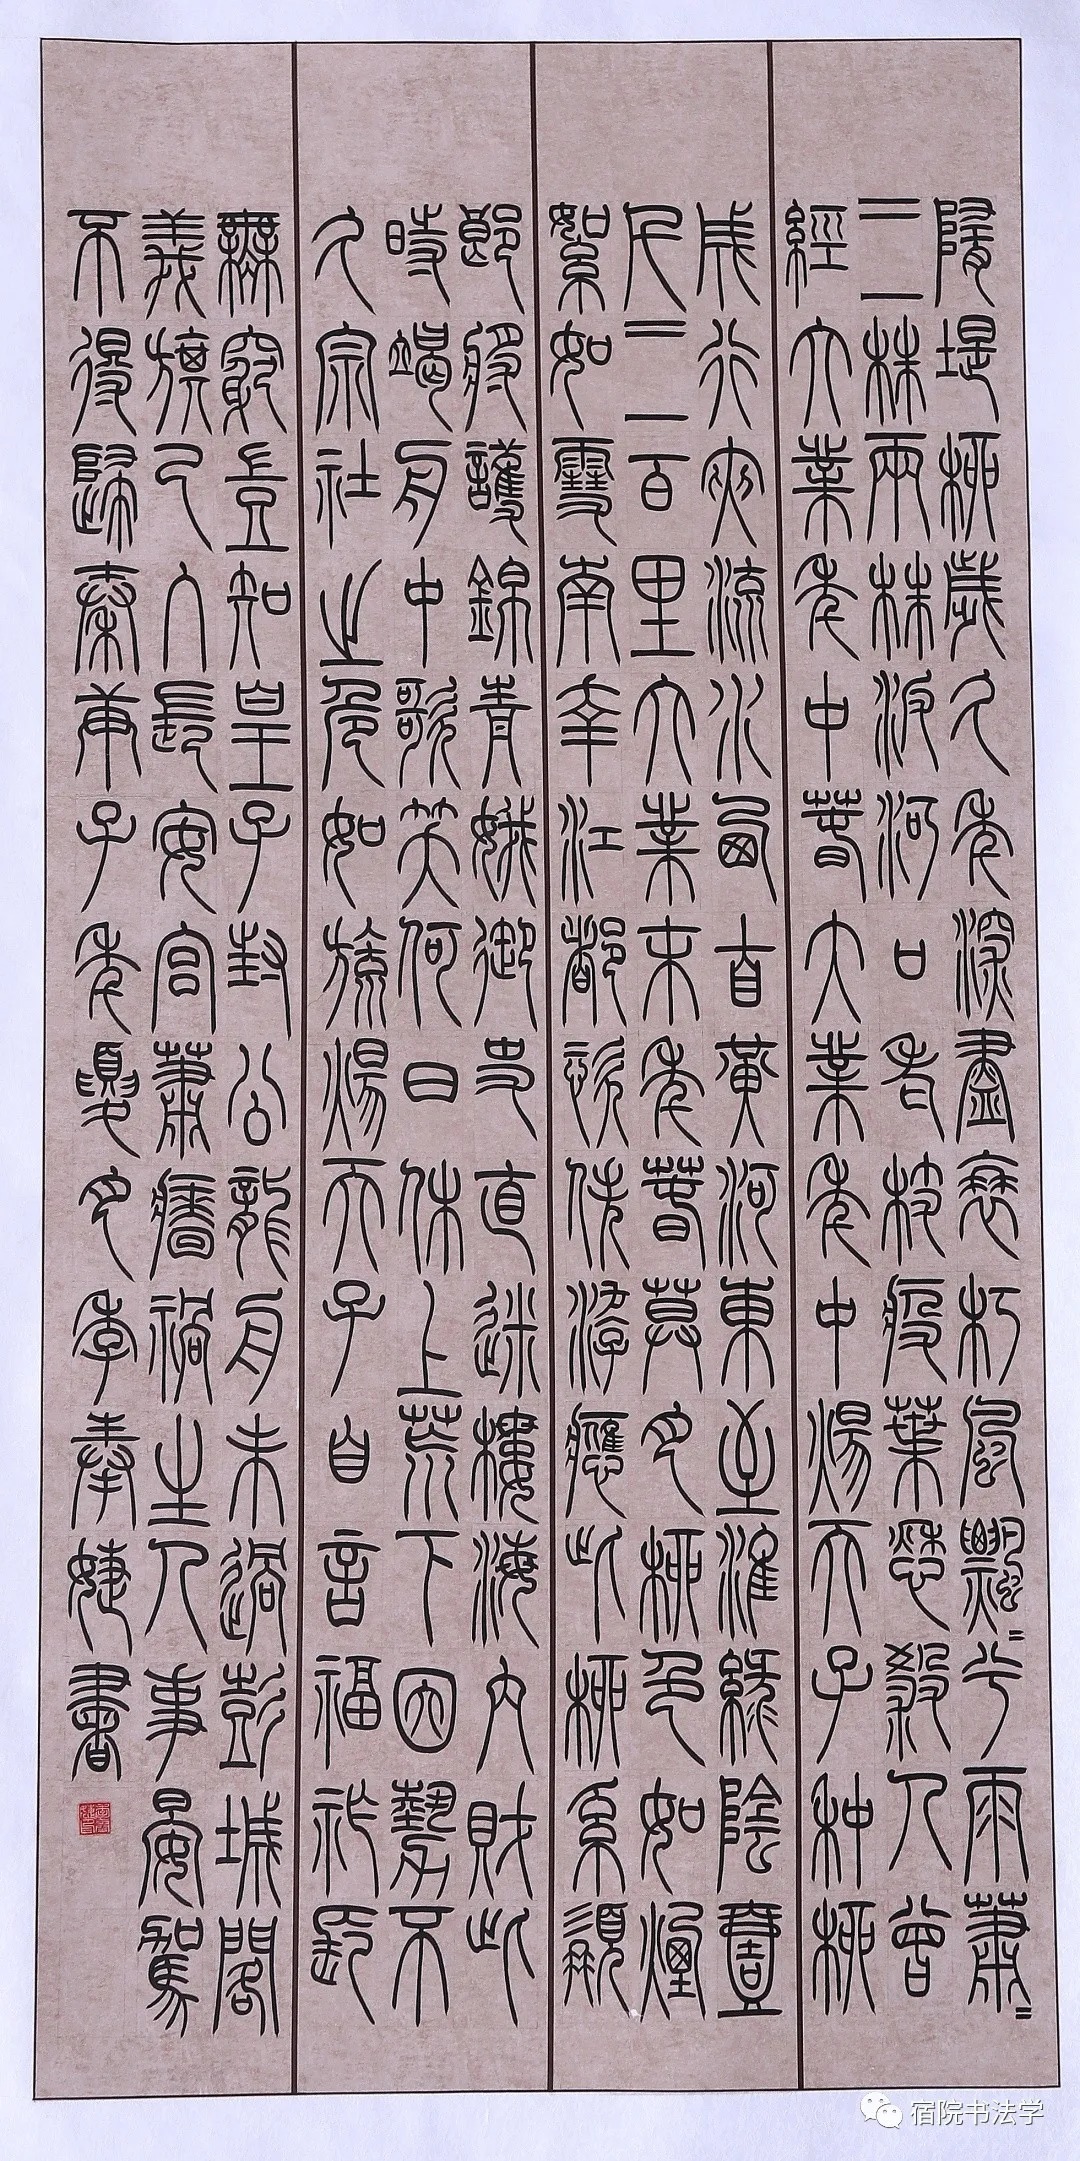 隋堤柳歲久年深盡衰朽風飄〻兮雨蕭〻
三株兩株汴河口老枝病葉愁殺人曾
經大業年中春大業年中煬天子種柳
成行夾流水西自黃河東至淮綠陰壹
千三百里大業末年春莫月柳色如煙
絮如雪南幸江都恣佚游應此柳系
郎將護錦青娥御史直迷樓海內財此
時竭舟中歌笑何日休上荒下困勢不
久宗社之危如旒煬天子自言福祚長
無窮豈知皇子封公龍舟未過彭城閣
義旗已入長安宮蕭牆禍生人事晏駕
不得歸秦庚子年夏月李奉婕書
宿院书法学